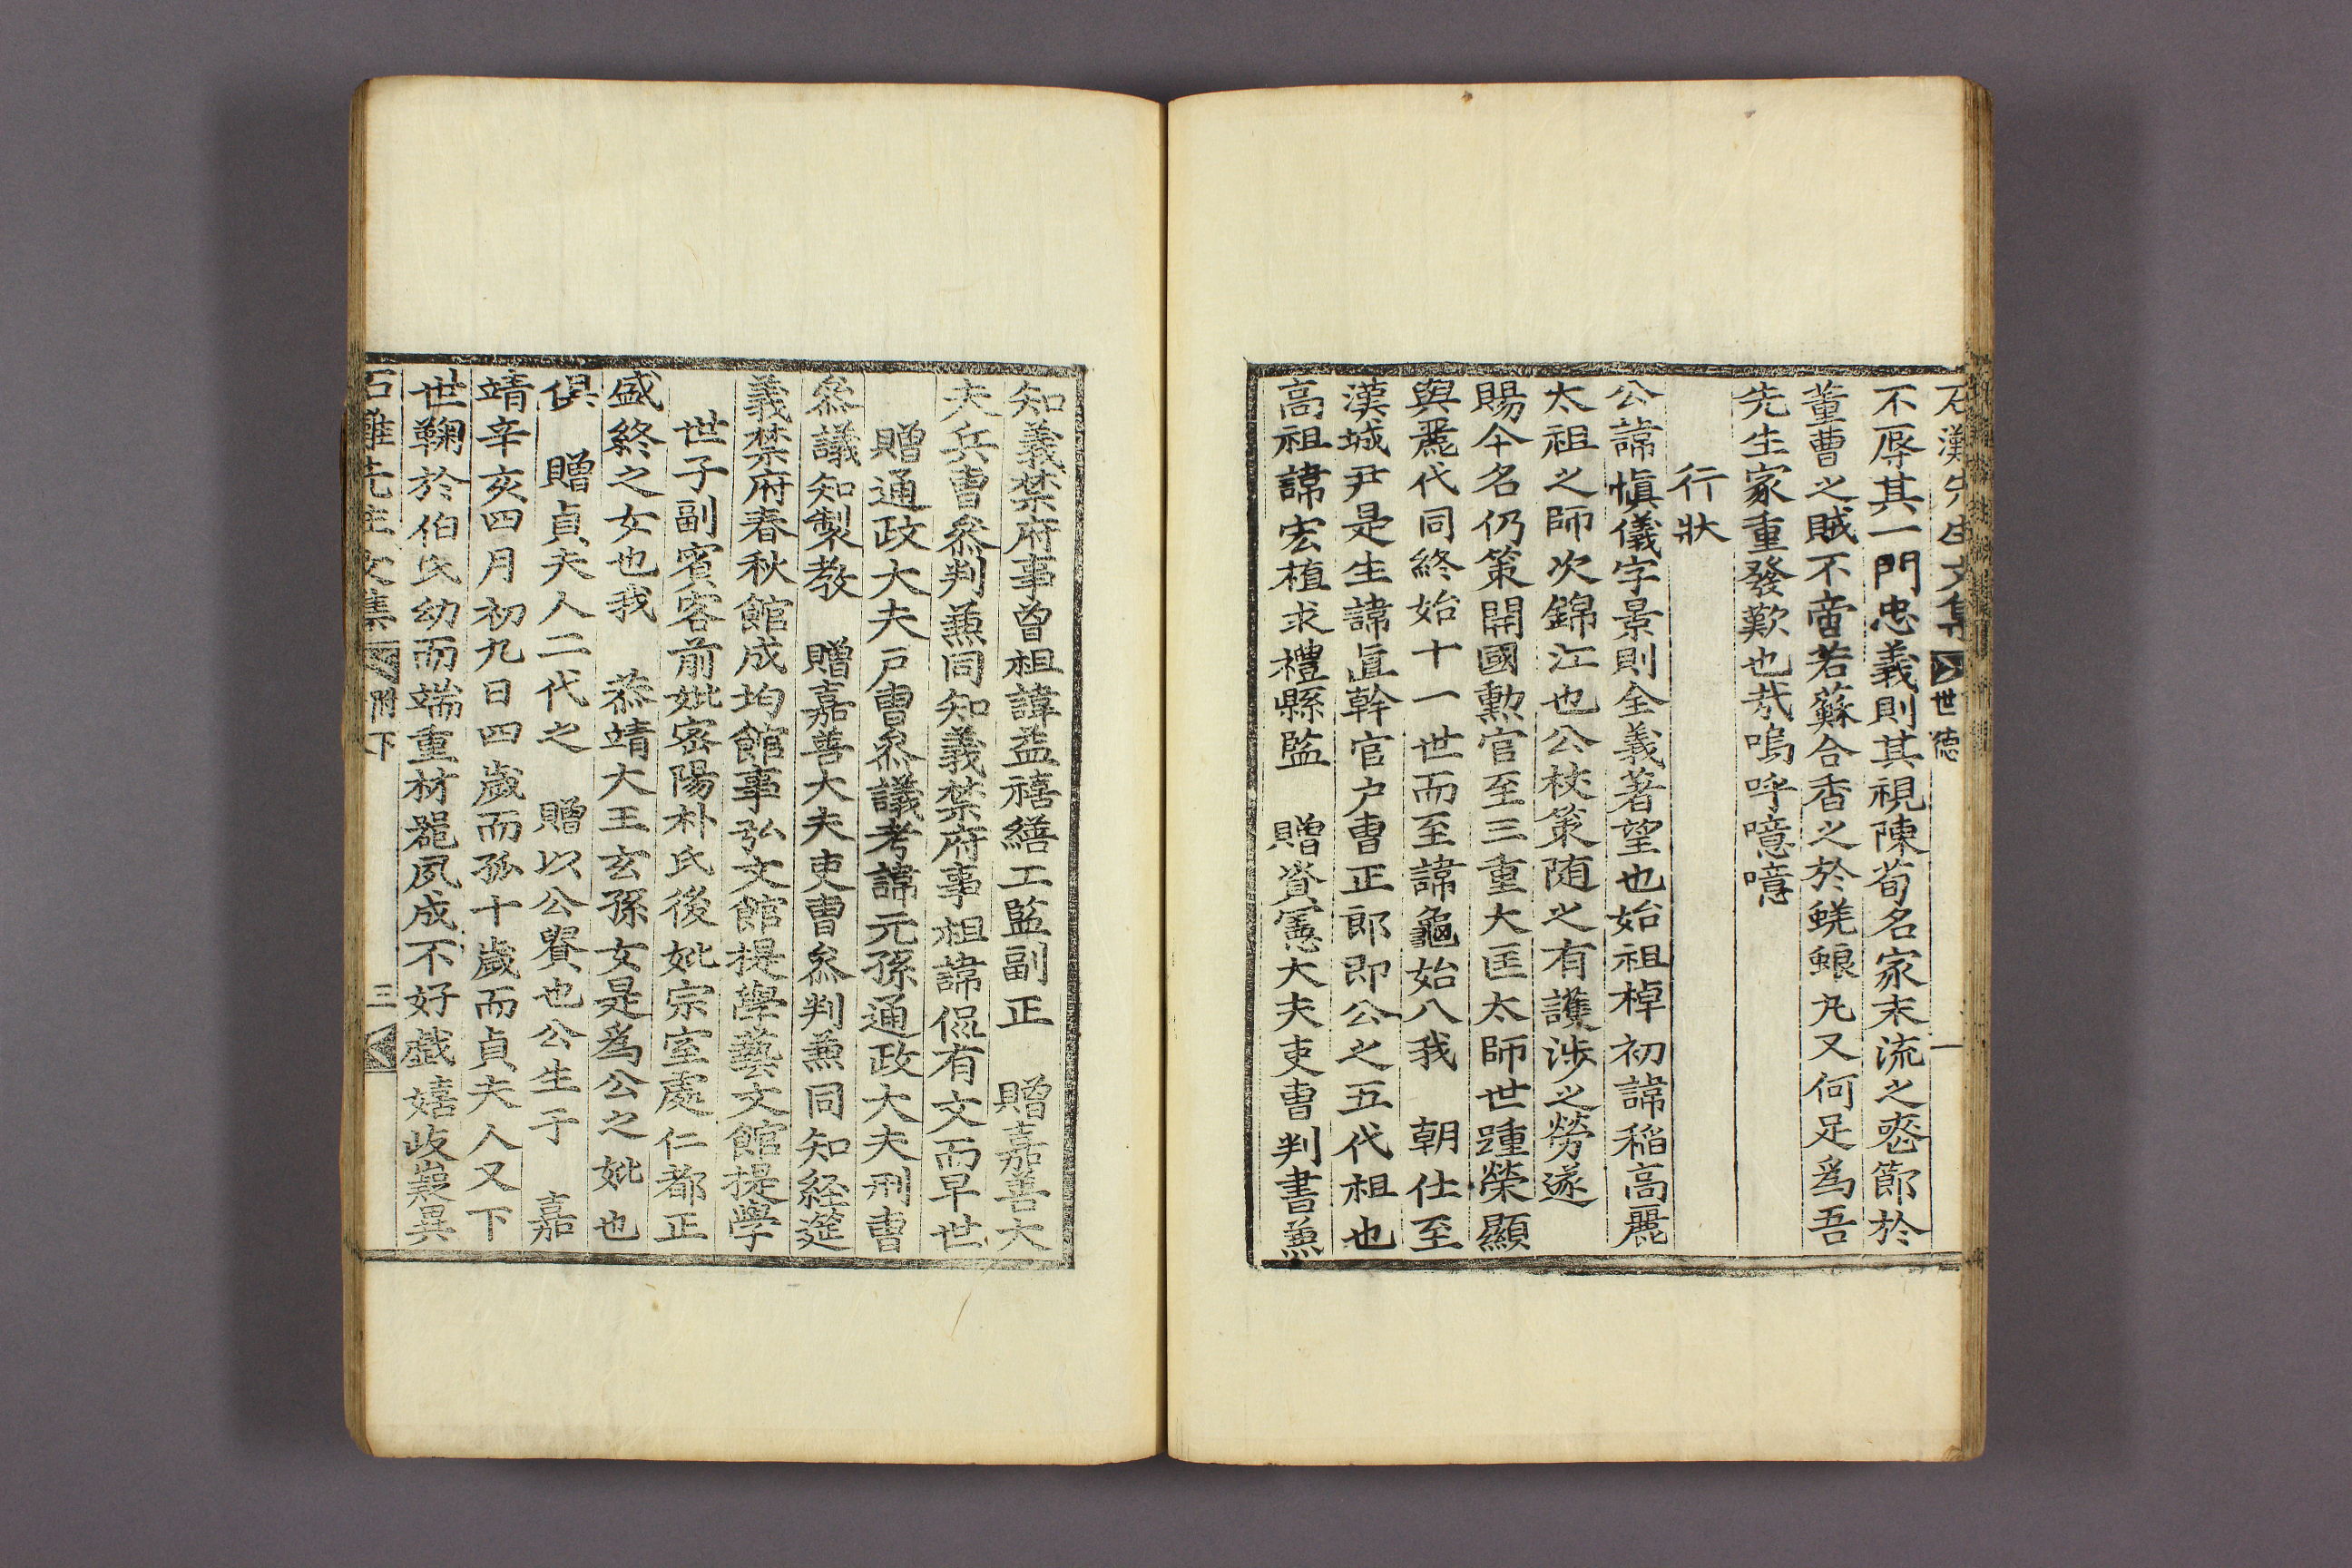 石灘先生文集 世德 一
不辱其一門忠義則其視陳荀名家末流之虧節於
董曹之賊不啻若蘇合香之於蜣蜋丸又何足爲吾
先生家重發歎也㢤嗚呼噫噫
行狀
公諱愼儀字景則全義著望也始祖棹初諱稲高麗
太祖之師次錦江也公校策随之有護涉之勞遂
賜今名仍策開國勳官至三重大匡太師世踵榮顯
與麗代同終始十一世而至諱龜始入我 朝仕至
漢城尹是生諱直幹官户曺正郎即公之五代祖也
高祖諱宏植求禮縣監 贈資憲大夫吏曺判書兼
知義禁府事曾祖諱益禧繕工監副正 贈嘉善大
夫兵曺叅判兼同知義禁府事祖諱侃有文而早世
贈通政大夫戸曺叅議考諱元孫通政大夫刑曺
叅議知製敎 贈嘉善大夫吏曺叅判兼同知經筵
義禁府春秋館成均館事弘文館提學藝文館提學
世子副賓客前妣密陽朴氏後妣宗室處仁都正
盛終之女也我 恭靖大王玄孫女是爲公之妣也
俱 贈貞夫人二代之 贈以公貴也公生于 嘉
靖辛亥四月初九日四歲而孤十歲而貞夫人又下
世鞠於伯氏幼而端重材器夙成不好戲嬉岐嶷異
石灘先生文集 附下 三